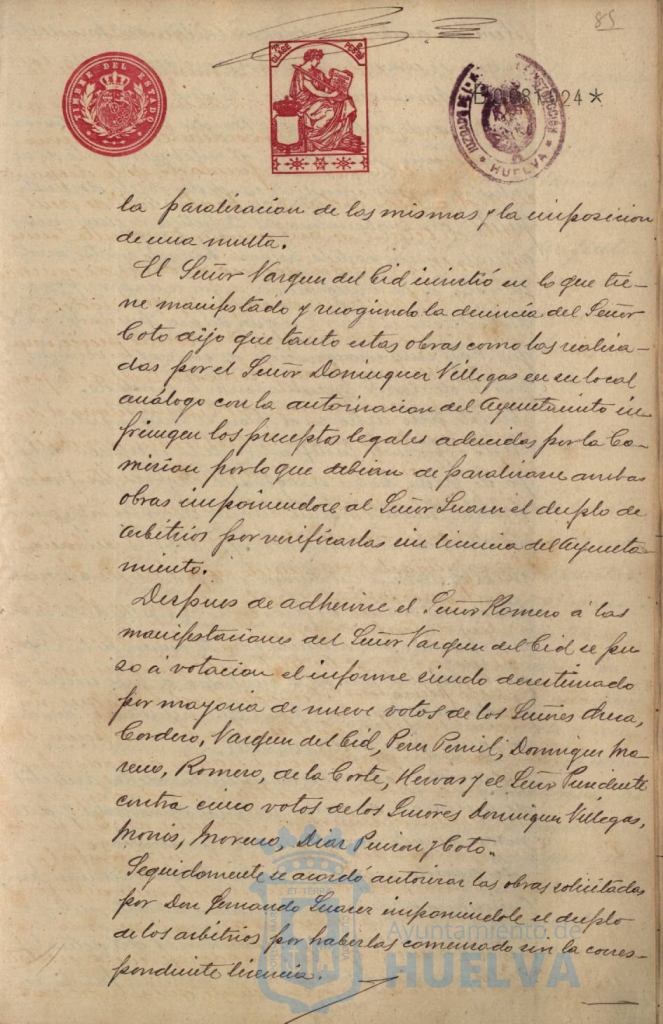 85
TIMBRE DEL ESTADO
CLASE
B0.081.924*
HUELVA
la paralizacion de las mismas y la imposicion
de una multa.
El Señor Vazquez del Cid insistió en lo que tie-
ne manifestado y recogiendo la denuncia del Señor
Coto dijo que tanto estas obras como las realiza-
das por el Señor Dominguez Villegas en su local
análogo con la autorizacion del Ayuntamiento in-
fringen los preceptos legales aducidos por la Co-
mision por lo que debian de paralizarse ambas
obras imponiendose al Señor Suarez el duplo de
arbitrios por verificarlas sin licencia del Ayunta-
miento.
Despues de adherirse el Señor Romero á las
manifestaciones del Señor Vazquez del Cid se pu-
so á votacion el informe siendo desestimado
por mayoria de nueve votos de los Señores
Cordero, Vazquez del Cid, Perez Dominguez Mo-
reno, Romero, de la Corte, Hervas y el Señor Presidente
contra cinco votos de los Señores Dominguez Villegas,
Monis, Moreno, Diaz y Coto.
Seguidamente se acordó autorizar las obras solicitadas
por Don Fernando Suarez imponiendole el duplo
de los arbitrios por haberlas comenzado sin la corres-
pondiente licencia.
Ayuntamiento de
HUELVA